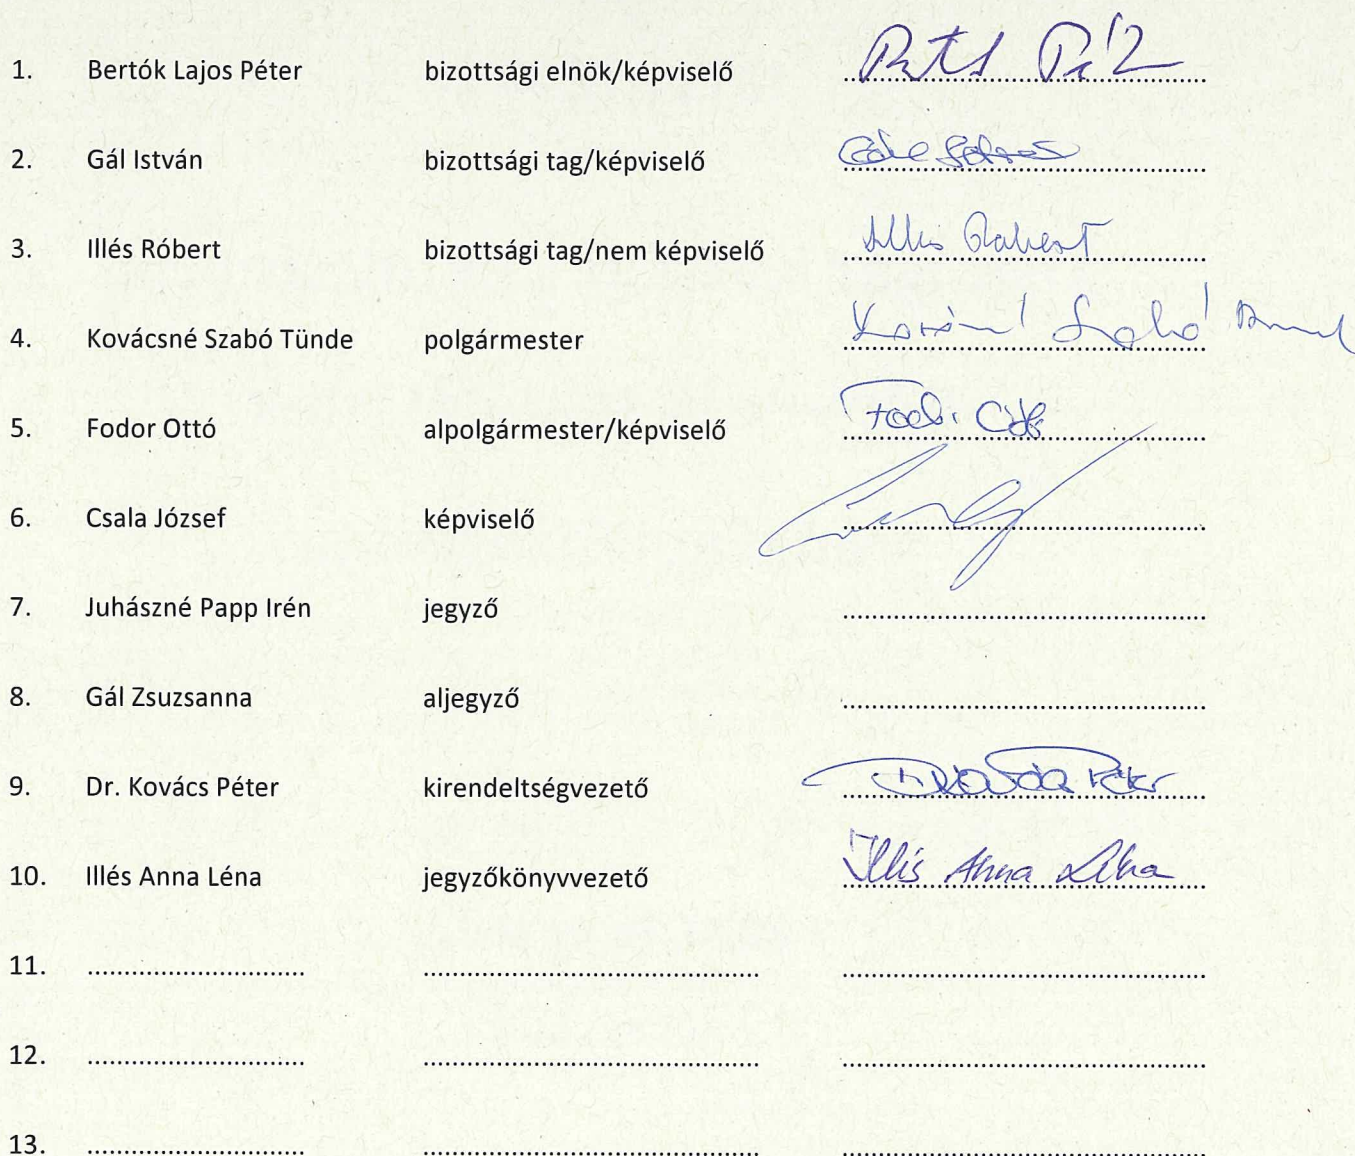 1. Bertók Lajos Péter bizottsági elnök/képviselő ............
2. Gál István bizottsági tag/képviselő Gál István
3. Illés Róbert bizottsági tag/nem képviselő Illés Róbert
4. Kovácsné Szabó Tünde polgármester Kovácsné Szabó Tünde
5. Fodor Ottó alpolgármester/képviselő Fodor Ottó
6. Csala József képviselő
7. Juhászné Papp Irén jegyző ............
8. Gál Zsuzsanna aljegyző ............
9. Dr. Kovács Péter kirendeltségvezető Dr Kovács Péter
10. Illés Anna Léna jegyzőkönyvvezető Illés Anna Léna
11. ............ ............ ............
12. ............ ............ ............
13. ............ ............ ............